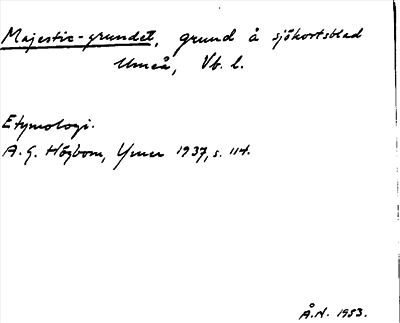 Majestic-grundet, grund å sjökortsblad
Umeå, Vb. l.
Etymologi.
A. G. Högbom, Ymer 1937, s. 114.
Å.N. 1953.